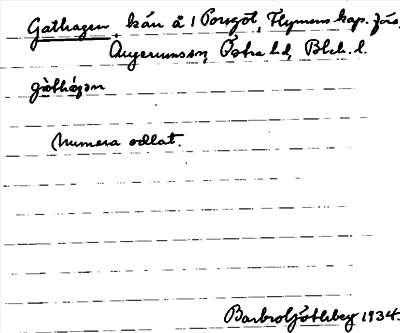 Gathagen, kån å 1 Porsgöt, Flymens kap. förs.
Augerums sn, Östra hd, Blek. l.
gàthágən
Numera odlat.
Barbro Götlberg 1934.